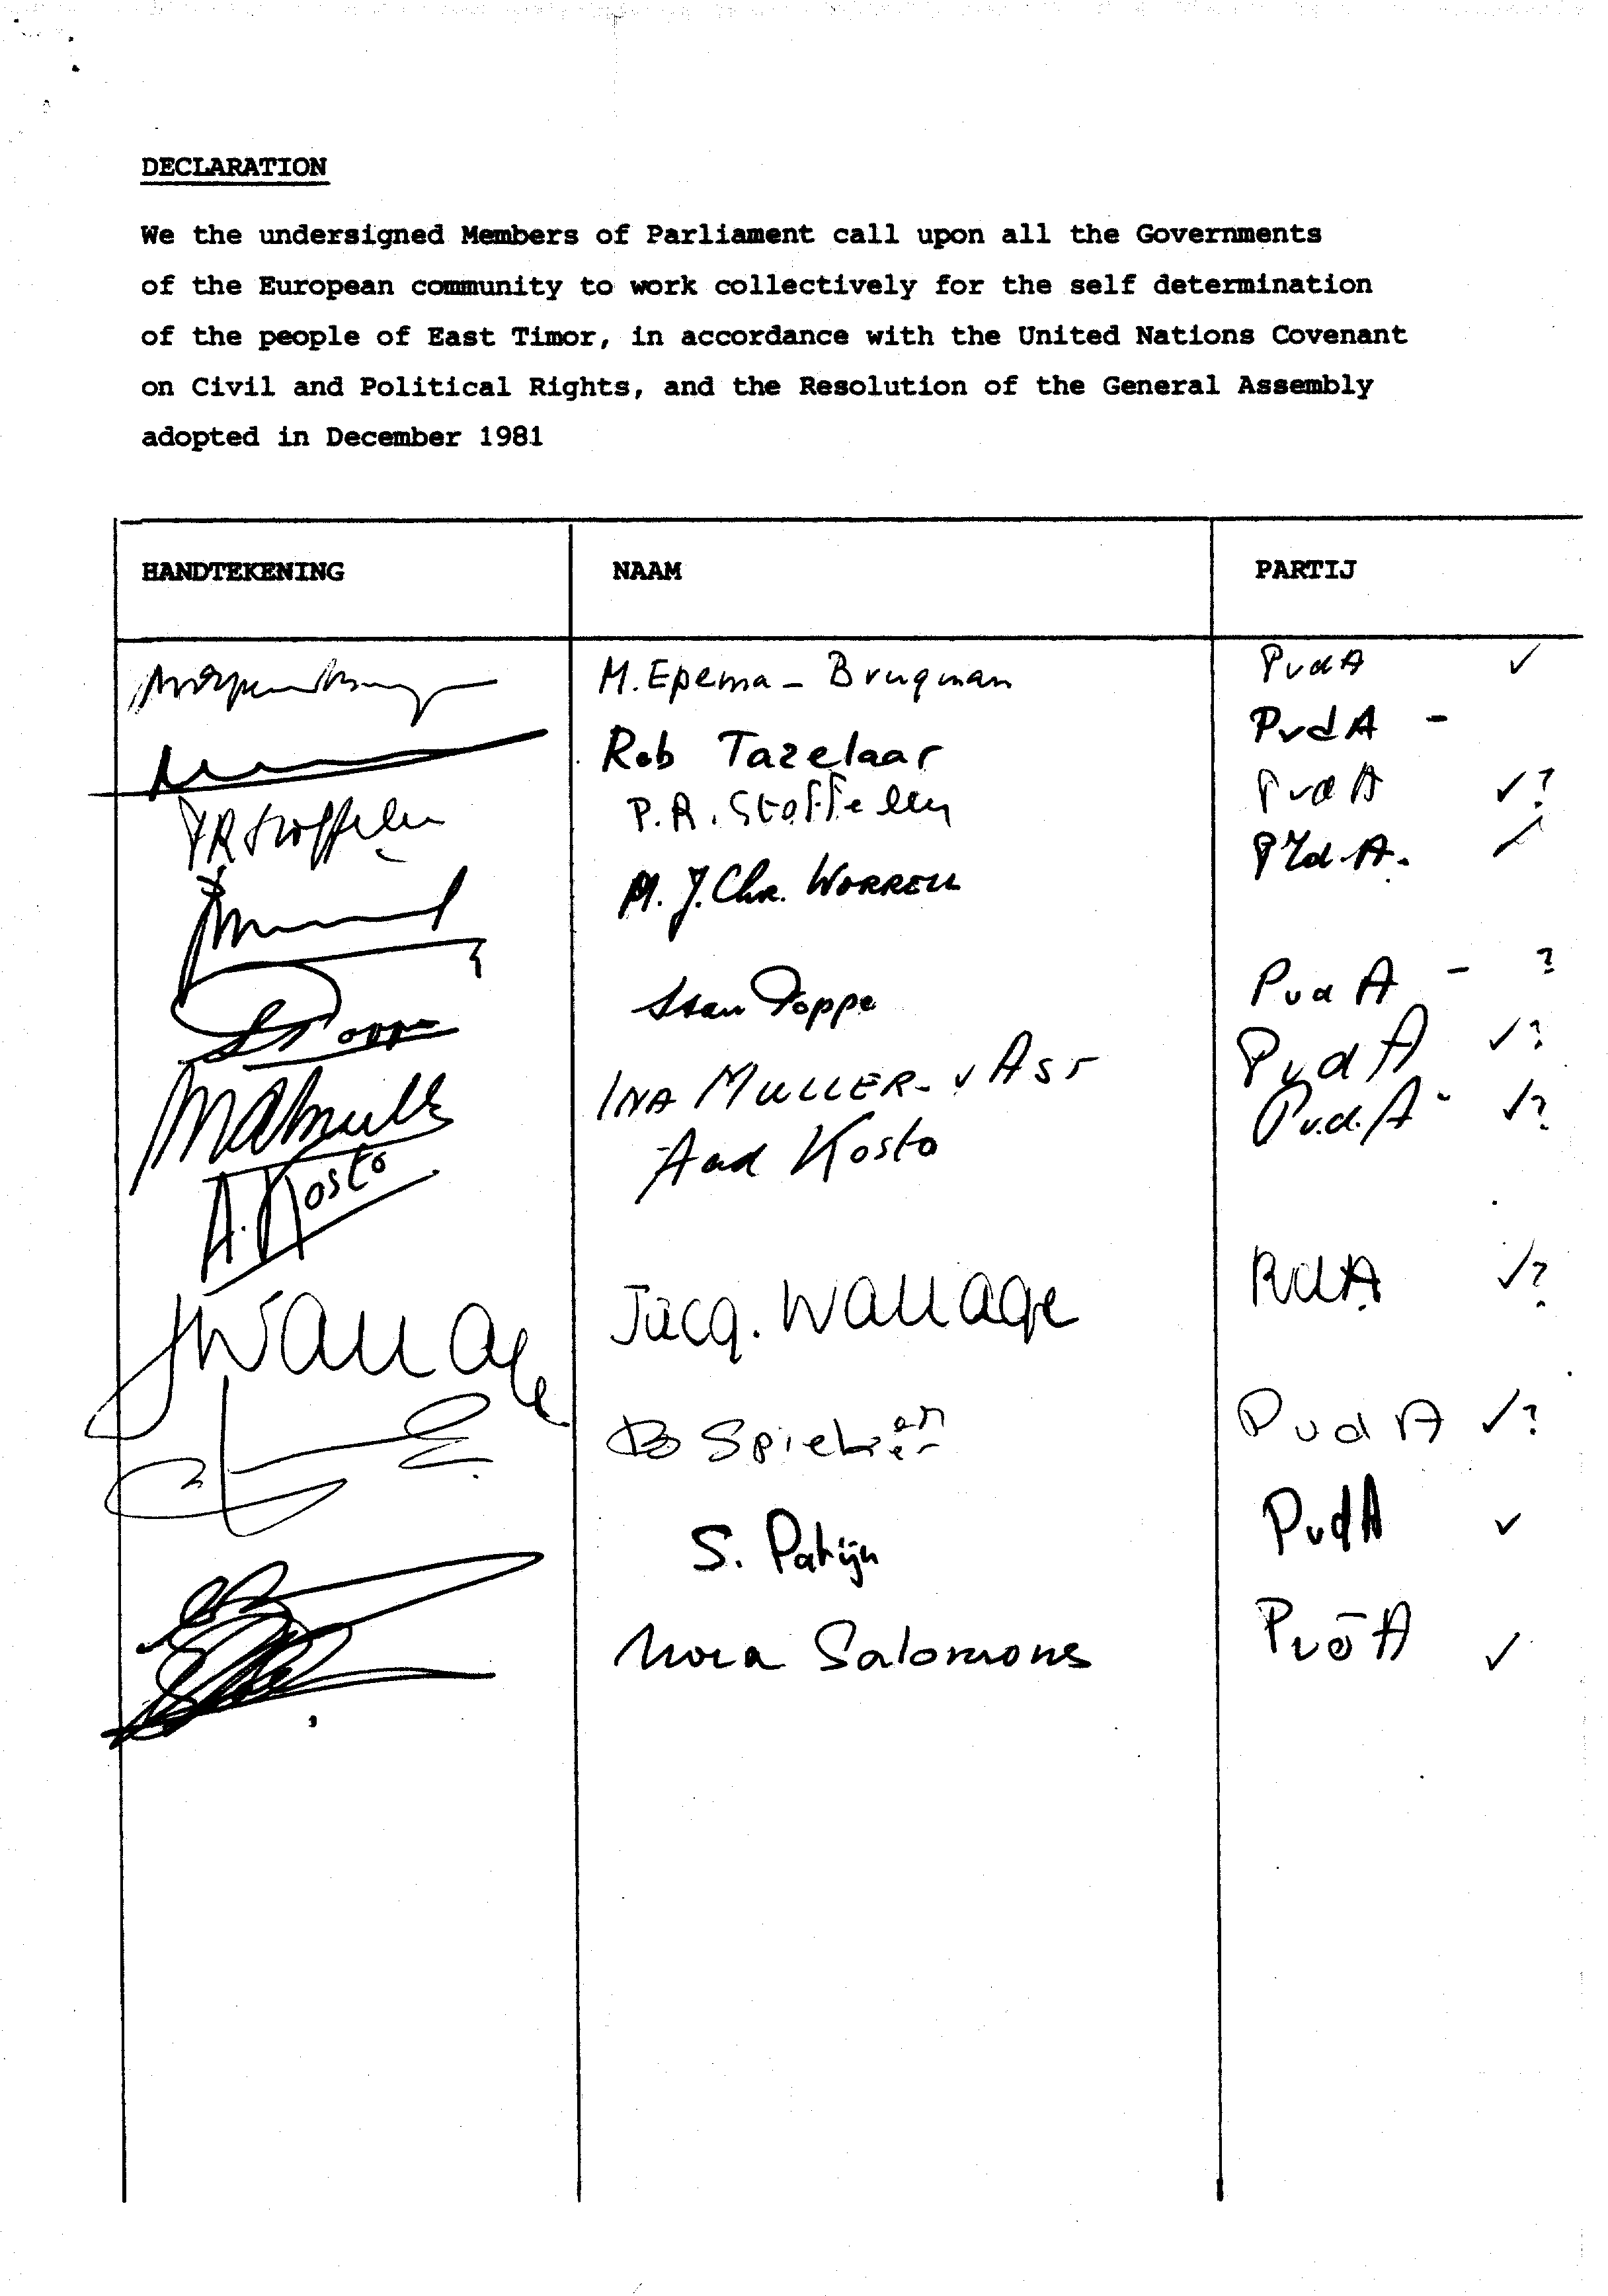 DECLARATION
We the undersigned Members of Parliament call upon all the Governments
of the European community to work collectively for the self determination
of the people of East Timor, in accordance with the United Nations Covenant
on Civil and Political Rights, and the Resolution of the General Assembly
adopted in December 1981
HANDTEKENING NAAM PARTIJ
M. Epema - Brugman PvdA ✓
Rob Tazelaar PvdA -
PRStoffelen P.R. Stoffelen PvdA ✓?
M. J. Chr. WORRELL PvdA. ✓
S Poppe Stan Poppe PvdA - ?
INA MULLER - v ASS PvdA ✓?
A. Kosto Aad Kosto P.v.d.A - ✓?
JWallage Jacq. Wallage PvdA ✓?
B Spieker PvdA ✓?
S. Patijn PvdA ✓
Nora Salomons PvdA ✓